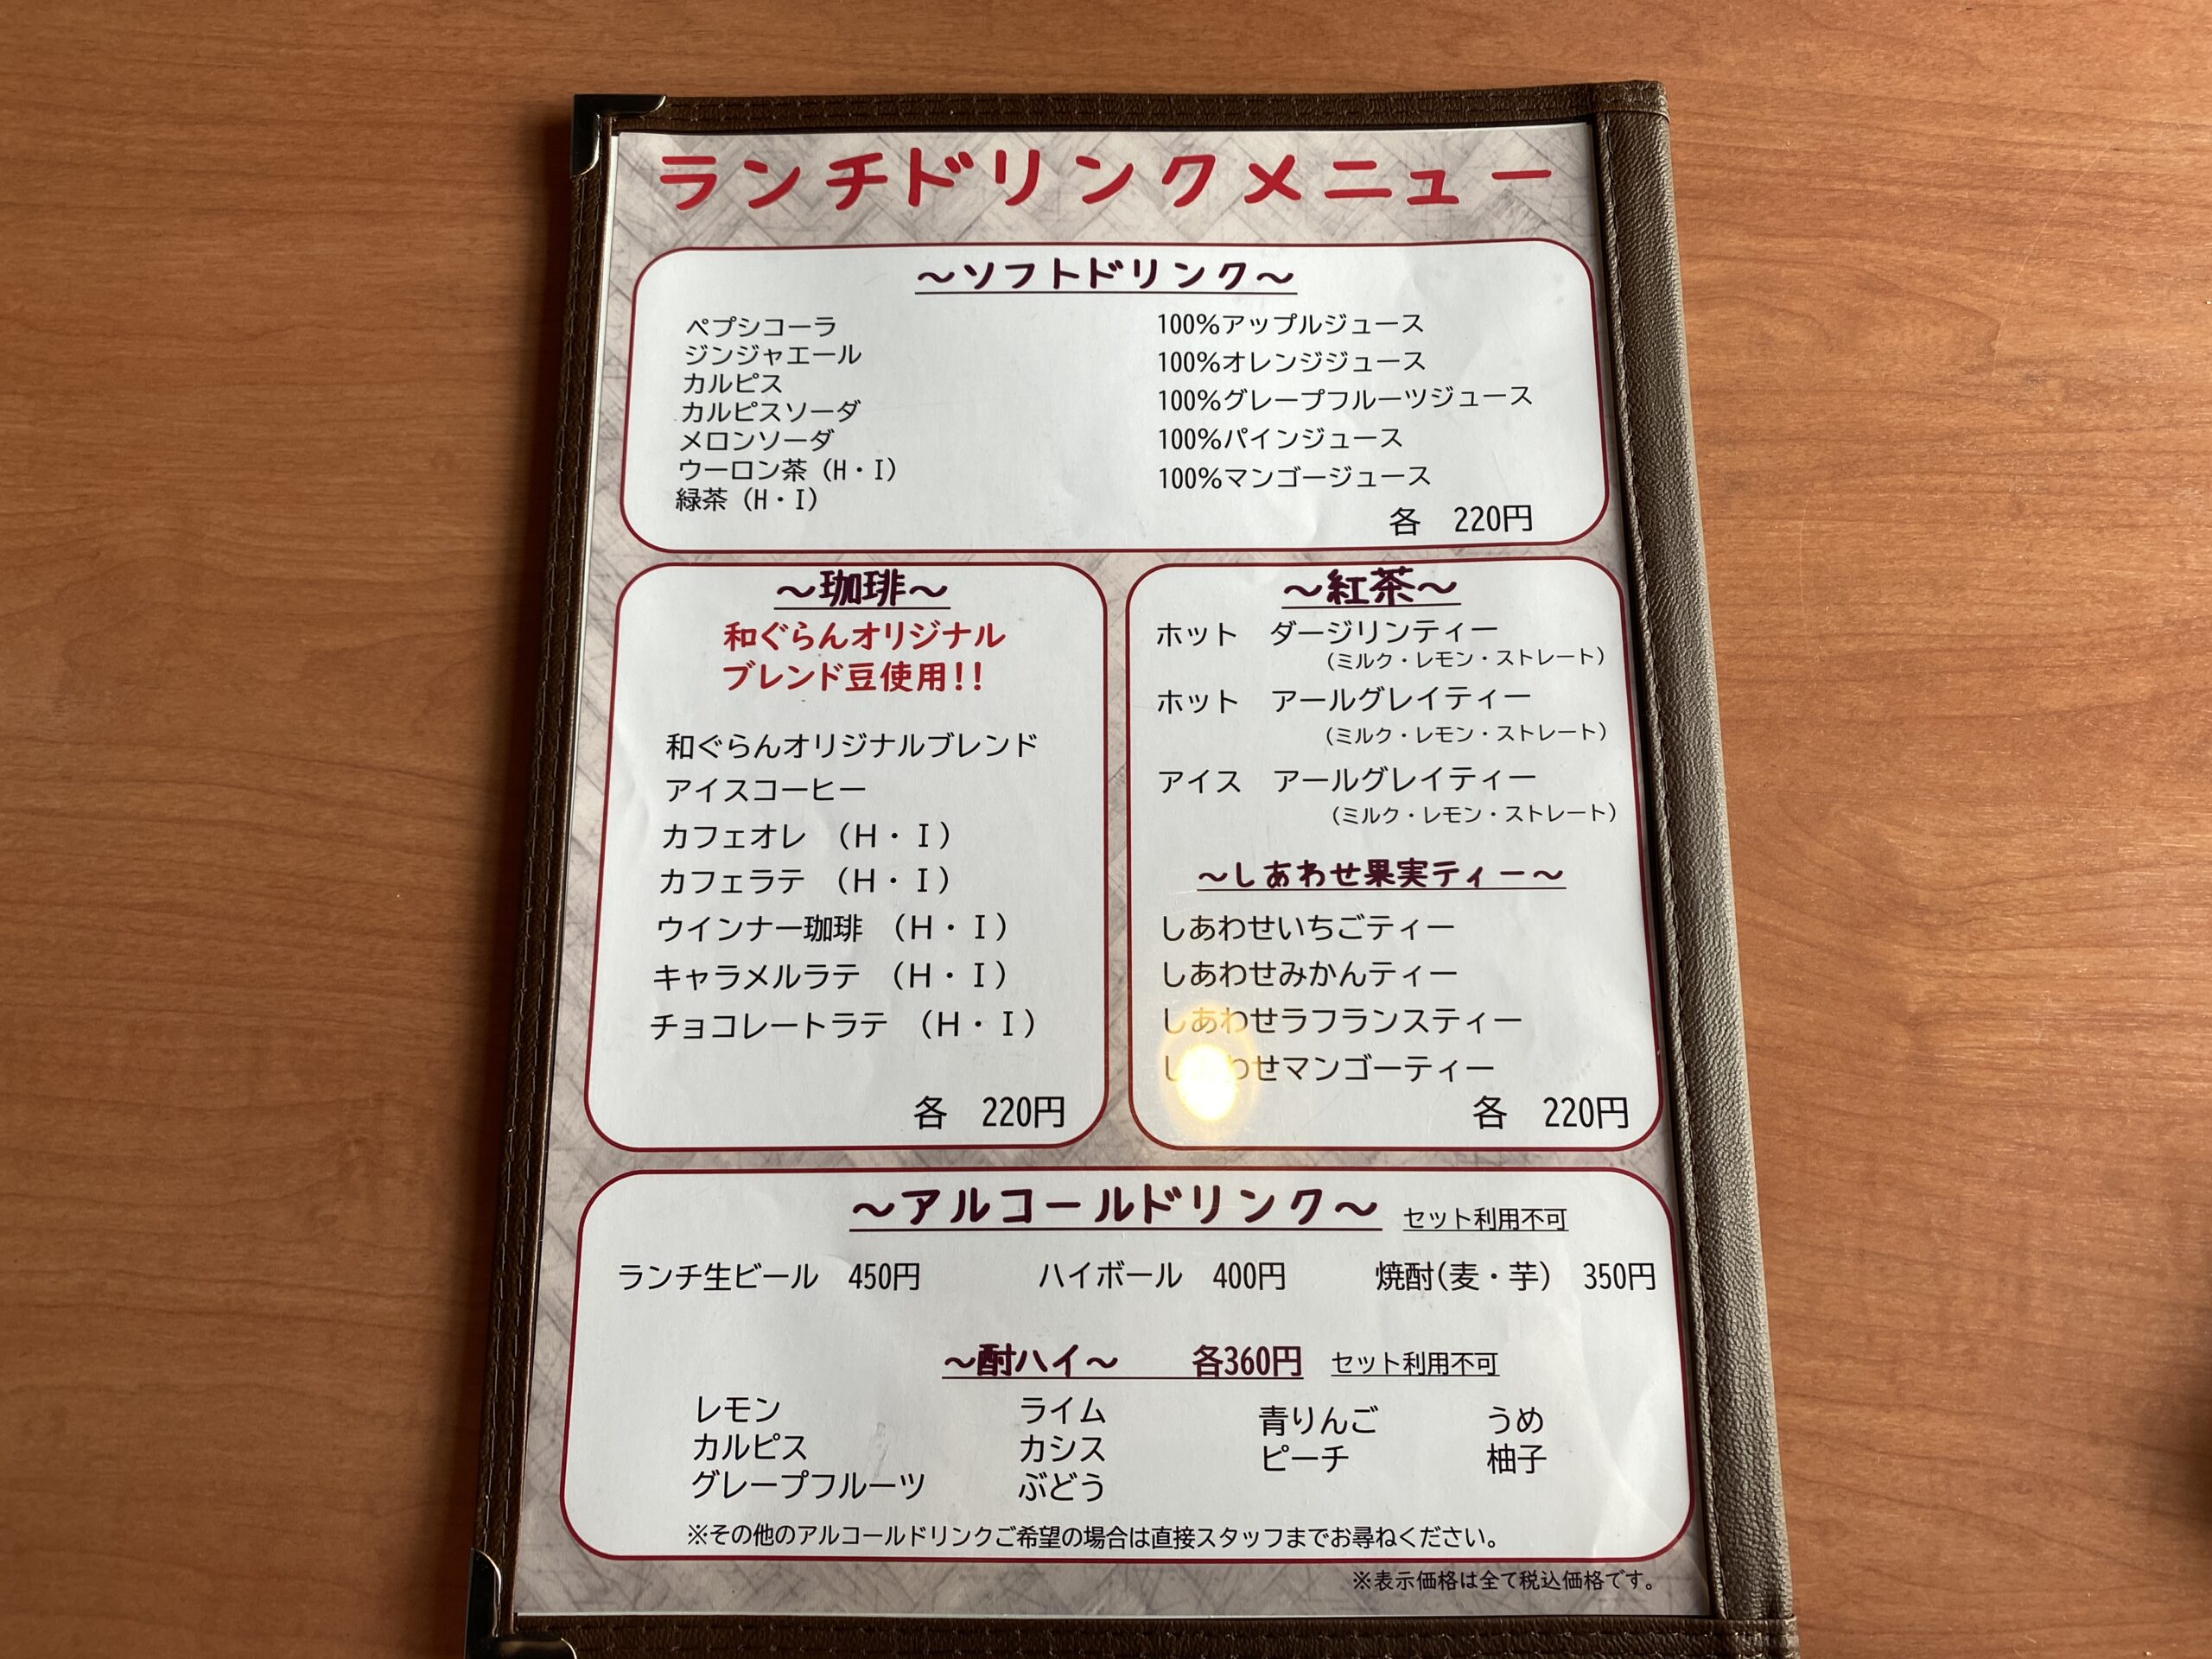 ランチドリンクメニュー
～ソフトドリンク～
ペプシコーラ
ジンジャエール
カルピス
カルピスソーダ
メロンソーダ
ウーロン茶（H・I）
緑茶（H・I）
100%アップルジュース
100%オレンジジュース
100%グレープフルーツジュース
100%パインジュース
100%マンゴージュース
各　220円
～珈琲～
和ぐらんオリジナル
ブレンド豆使用!!
和ぐらんオリジナルブレンド
アイスコーヒー
カフェオレ　（H・I）
カフェラテ　（H・I）
ウインナー珈琲　（H・I）
キャラメルラテ　（H・I）
チョコレートラテ　（H・I）
各　220円
～紅茶～
ホット　ダージリンティー
（ミルク・レモン・ストレート）
ホット　アールグレイティー
（ミルク・レモン・ストレート）
アイス　アールグレイティー
（ミルク・レモン・ストレート）
～しあわせ果実ティー～
しあわせいちごティー
しあわせみかんティー
しあわせラフランスティー
しあわせマンゴーティー
各　220円
～アルコールドリンク～　セット利用不可
ランチ生ビール　450円　ハイボール　400円　焼酎(麦・芋)　350円
～酎ハイ～　各360円　セット利用不可
レモン　ライム　青りんご　うめ
カルピス　カシス　ピーチ　柚子
グレープフルーツ　ぶどう
※その他のアルコールドリンクご希望の場合は直接スタッフまでお尋ねください。
※表示価格は全て税込価格です。